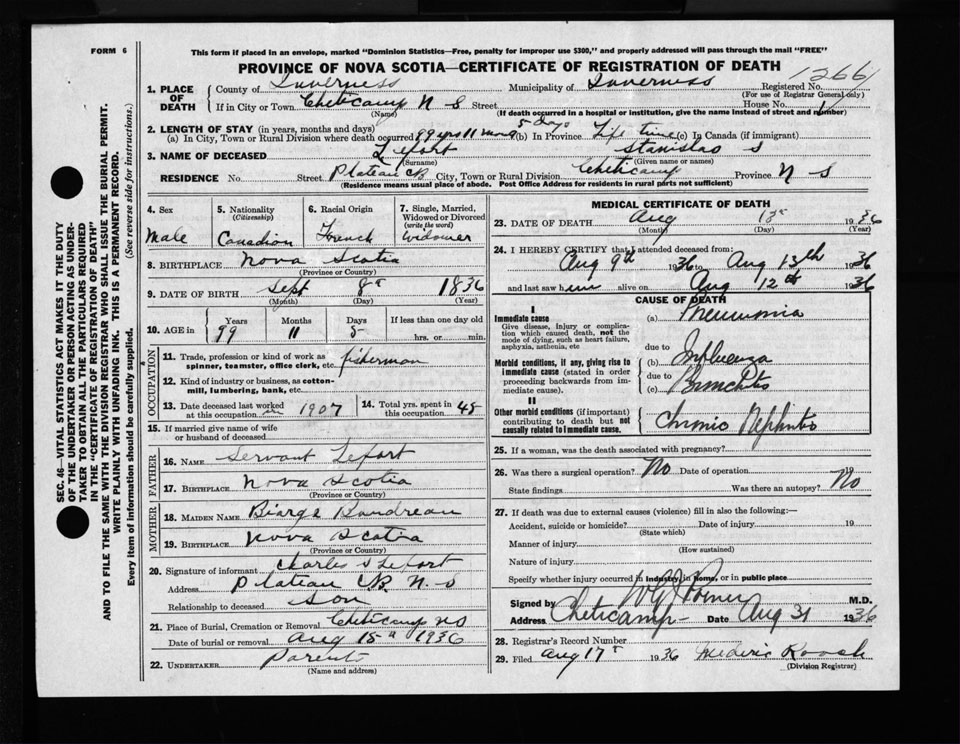 FORM 6
This form if placed in an envelope, marked "Dominion Statistics—Free, penalty for improper use $300," and properly addressed will pass through the mail "FREE"
PROVINCE OF NOVA SCOTIA—CERTIFICATE OF REGISTRATION OF DEATH
12661
1. PLACE OF DEATH
County of Inverness Municipality of Inverness Registered No.
(For use of Registrar General only)
If in City or Town Cheticamp N S Street House No.
(Name) (If death occurred in a hospital or institution, give the name instead of street and number)
2. LENGTH OF STAY (in years, months and days)
(a) In City, Town or Rural Division where death occurred 99 yrs 11 mons 5 days (b) In Province Life time (c) In Canada (if immigrant)
3. NAME OF DECEASED Lefort Stanislas S
(Surname) (Given name or names)
RESIDENCE No. Street Plateau CB City, Town or Rural Division Cheticamp Province N S
(Residence means usual place of abode. Post Office Address for residents in rural parts not sufficient)
4. Sex Male
5. Nationality (Citizenship) Canadian
6. Racial Origin French
7. Single, Married, Widowed or Divorced (write the word) Widower
8. BIRTHPLACE Nova Scotia
(Province or Country)
9. DATE OF BIRTH Sept 8 1836
(Month) (Day) (Year)
10. AGE in Years 99 Months 11 Days 5 If less than one day old hrs. or min.
OCCUPATION
11. Trade, profession or kind of work as spinner, teamster, office clerk, etc. fisherman
12. Kind of industry or business, as cotton-mill, lumbering, bank, etc.
13. Date deceased last worked at this occupation 1907
14. Total yrs. spent in this occupation 45
15. If married give name of wife or husband of deceased
FATHER
16. NAME Servant Lefort
17. BIRTHPLACE Nova Scotia
(Province or Country)
MOTHER
18. MAIDEN NAME
19. BIRTHPLACE Nova Scotia
(Province or Country)
20. Signature of informant Charles S Lefort
Address Plateau CB N. S
Relationship to deceased Son
21. Place of Burial, Cremation or Removal Cheticamp NS
Date of burial or removal Aug 15 1936
22. UNDERTAKER Parents
(Name and address)
MEDICAL CERTIFICATE OF DEATH
23. DATE OF DEATH Aug 13 1936
(Month) (Day) (Year)
24. I HEREBY CERTIFY that I attended deceased from:
Aug 9th 1936 to Aug 13th 1936
and last saw him alive on Aug 12th 1936
CAUSE OF DEATH
I
Immediate cause (a) Pneumonia
Give disease, injury or complication which caused death, not the mode of dying, such as heart failure, asphyxia, asthenia, etc
due to
Morbid conditions, if any, giving rise to immediate cause (stated in order proceeding backwards from immediate cause).
(b) Influenza
due to
(c) Bronchitis
II
Other morbid conditions (if important) contributing to death but not causally related to immediate cause.
Chronic Nephritis
25. If a woman, was the death associated with pregnancy?
26. Was there a surgical operation? No Date of operation 19
State findings Was there an autopsy? No
27. If death was due to external causes (violence) fill in also the following:—
Accident, suicide or homicide? Date of injury 19
(State which)
Manner of injury
(How sustained)
Nature of injury
Specify whether injury occurred in industry, in home, or in public place
Signed by M.D.
Address Cheticamp Date Aug 31 1936
28. Registrar's Record Number
29. Filed Aug 17 1936 Mederic Roach
(Division Registrar)
SEC. 46—VITAL STATISTICS ACT MAKES IT THE DUTY
OF THE UNDERTAKER OR PERSON ACTING AS UNDER-
TAKER TO OBTAIN ALL THE PARTICULARS REQUIRED
IN THE "CERTIFICATE OF REGISTRATION OF DEATH"
AND TO FILE THE SAME WITH THE DIVISION REGISTRAR WHO SHALL ISSUE THE BURIAL PERMIT.
WRITE PLAINLY WITH UNFADING INK. THIS IS A PERMANENT RECORD.
Every item of information should be carefully supplied. (See reverse side for instructions.)